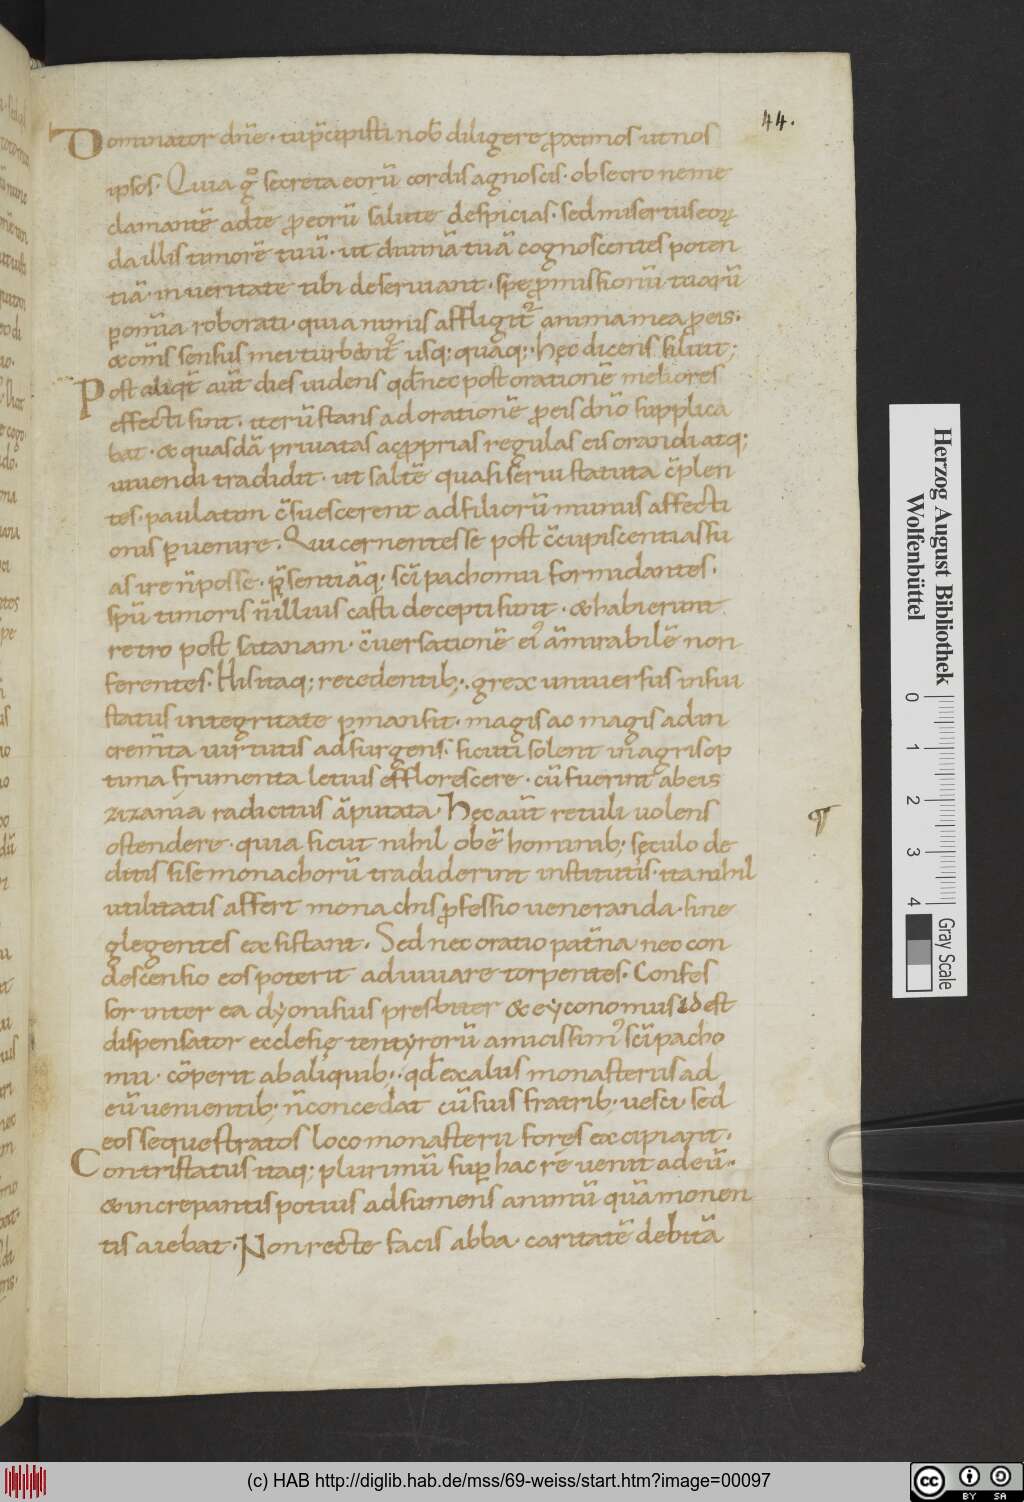 44.
Dominator dñe · tu p̄cipisti nob̄ diligere proximos ut nos
ipsos · Quia g̊ secreta eorū cordis agnoscis · obsecro ne me
clamantē ad te pro eorū salute despicias · sed misertus eoꝝ
da illis timorē tuū · ut diuinā tuā cognoscentes poten
tiā · in ueritate tibi deseruiant · spe promissionū tuarū
ꝑ om̄ia roborati · quia nimis affligit᷑ anima mea pro eis ·
& om̄s sensus mei turbant᷑ usq; quaq; · hęc dicens siluit;
Post aliq̄t aūt dies uidens qd̄ nec post orationē meliores
effecti sint · iterū stans ad orationē pro eis dñō supplica
bat · & quasdā priuatas ac proprias regulas eis orandi atq;
uiuendi tradidit · ut saltē quasi serui statuta c̄plen
tes · paulatim c̄suescerent ad filiorū munus affecti
onis ꝑuenire · Qui cernentes se post c̄cupiscentias su
as ire n̄ posse · p̄sentiāq; sc̄i pachomii formidantes ·
sp̄u timoris n̄ illius casti decepti sunt · & habierunt
retro post satanam · c̄uersationē ei᾿ āmirabilē non
ferentes · His itaq; recedentib; · grex uniuersus in sui
status integritate ꝑmansit · magis ac magis ad in
crem̄ta uirtutis adsurgens · sicuti solent in agris op
tima frumenta letius efflorescere · cū fuerint ab eis
zizania radicitus āputata · Hęc aūt retuli uolens
ostendere · quia sicut nihil obē hominib; sęculo de
ditis si se monachorū tradiderint institutis · ita nihil
utilitatis affert monachis professio ueneranda · si ne
glegentes exsistant · Sed nec oratio pat̄na nec con
descensio eos poterit adiuuare torpentes · Confes
sor inter ea dyonisius presbiter & eyconomus id est
dispensator ecclesię tentyrorū amicissim᾿ sc̄i pacho
mii · cōperit ab aliquib; · qd̄ ex aliis monasteriis ad
eū uenientib; n̄ concedat cū suis fratrib; uesci · sed
eos sequestratos loco monasterii fores excipiant ·
Contristatus itaq; plurimū suꝑ hac re uenit ad eū ·
& increpantis potius adsumens animū quā monen
tis aiebat · Non recte facis abba · caritatē debitā
Herzog August Bibliothek
Wolfenbüttel
0 1 2 3 4
Gray Scale
(c) HAB http://diglib.hab.de/mss/69-weiss/start.htm?image=00097
cc BY SA